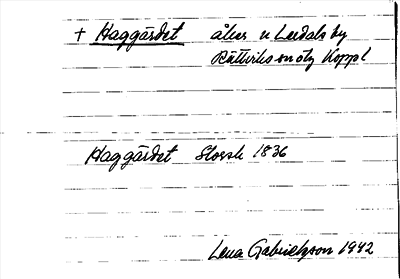 + Haggärdet åker u Lerdals by
Rättvikssn otg Koppl
Haggärdet Storsk 1836
Lena Gabrielsson 1942